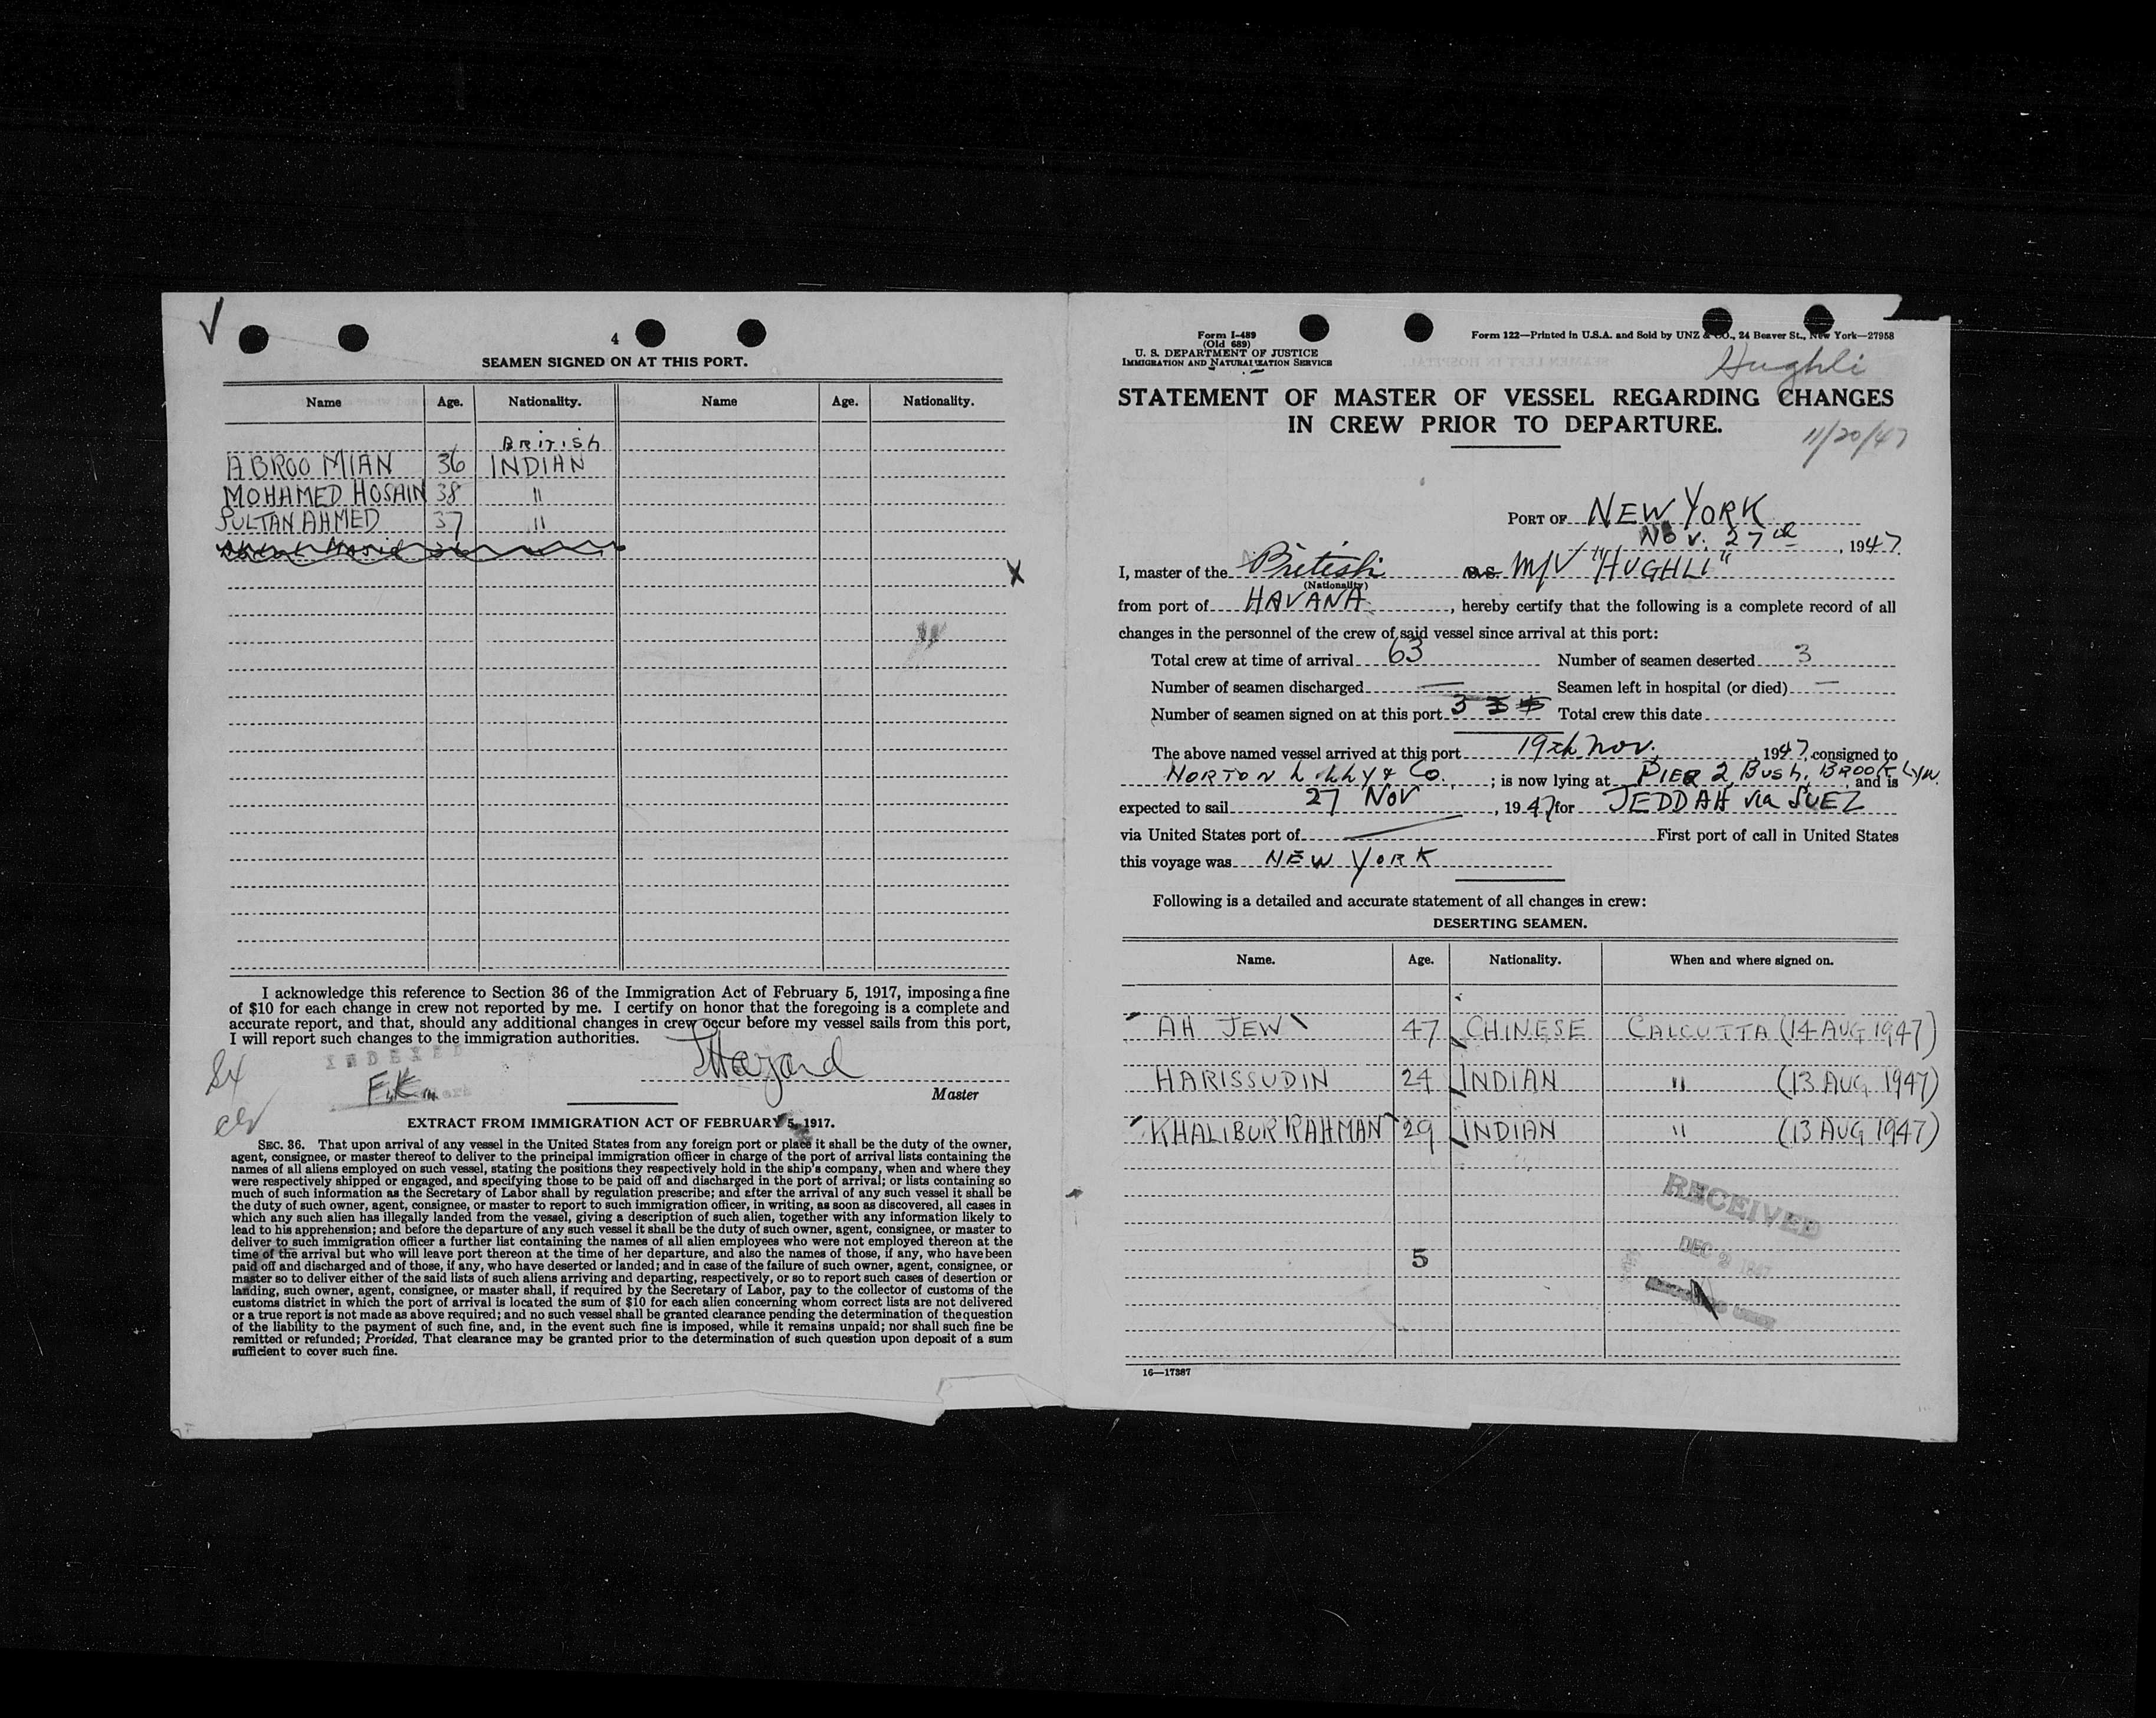 4
SEAMEN SIGNED ON AT THIS PORT.
Name Age. Nationality. Name Age. Nationality.
BRITISH
ABROO MIAN 36 INDIAN
MOHAMED HOSAIN 38 "
SULTAN AHMED 37 "
X
I acknowledge this reference to Section 36 of the Immigration Act of February 5, 1917, imposing a fine
of $10 for each change in crew not reported by me. I certify on honor that the foregoing is a complete and
accurate report, and that, should any additional changes in crew occur before my vessel sails from this port,
I will report such changes to the immigration authorities.
INDEXED
F.K.
Master
EXTRACT FROM IMMIGRATION ACT OF FEBRUARY 5, 1917.
SEC. 36. That upon arrival of any vessel in the United States from any foreign port or place it shall be the duty of the owner,
agent, consignee, or master thereof to deliver to the principal immigration officer in charge of the port of arrival lists containing the
names of all aliens employed on such vessel, stating the positions they respectively hold in the ship's company, when and where they
were respectively shipped or engaged, and specifying those to be paid off and discharged in the port of arrival; or lists containing so
much of such information as the Secretary of Labor shall by regulation prescribe; and after the arrival of any such vessel it shall be
the duty of such owner, agent, consignee, or master to report to such immigration officer, in writing, as soon as discovered, all cases in
which any such alien has illegally landed from the vessel, giving a description of such alien, together with any information likely to
lead to his apprehension; and before the departure of any such vessel it shall be the duty of such owner, agent, consignee, or master to
deliver to such immigration officer a further list containing the names of all alien employees who were not employed thereon at the
time of the arrival but who will leave port thereon at the time of her departure, and also the names of those, if any, who have been
paid off and discharged and of those, if any, who have deserted or landed; and in case of the failure of such owner, agent, consignee, or
master so to deliver either of the said lists of such aliens arriving and departing, respectively, or so to report such cases of desertion or
landing, such owner, agent, consignee, or master shall, if required by the Secretary of Labor, pay to the collector of customs of the
customs district in which the port of arrival is located the sum of $10 for each alien concerning whom correct lists are not delivered
or a true report is not made as above required; and no such vessel shall be granted clearance pending the determination of the question
of the liability to the payment of such fine, and, in the event such fine is imposed, while it remains unpaid; nor shall such fine be
remitted or refunded; Provided, That clearance may be granted prior to the determination of such question upon deposit of a sum
sufficient to cover such fine.
Form I-489
(Old 689)
U. S. DEPARTMENT OF JUSTICE
IMMIGRATION AND NATURALIZATION SERVICE
Form 122—Printed in U.S.A. and Sold by UNZ & CO., 24 Beaver St., New York—27958
Hughli
STATEMENT OF MASTER OF VESSEL REGARDING CHANGES
IN CREW PRIOR TO DEPARTURE.
11/20/47
PORT OF NEW YORK
Nov. 27th, 1947
I, master of the British S.S. M/V "HUGHLI"
(Nationality)
from port of HAVANA, hereby certify that the following is a complete record of all
changes in the personnel of the crew of said vessel since arrival at this port:
Total crew at time of arrival 63 Number of seamen deserted 3
Number of seamen discharged — Seamen left in hospital (or died) —
Number of seamen signed on at this port 3 Total crew this date
The above named vessel arrived at this port 19th Nov. 1947, consigned to
NORTON LILLY & Co.; is now lying at PIER 2 BUSH, BROOKLYN. and is
expected to sail 27 NOV, 1947 for JEDDAH via SUEZ
via United States port of — First port of call in United States
this voyage was NEW YORK
Following is a detailed and accurate statement of all changes in crew:
DESERTING SEAMEN.
Name. Age. Nationality. When and where signed on.
AH JEW 47 CHINESE CALCUTTA (14 AUG 1947)
HARISSUDIN 24 INDIAN " (13 AUG 1947)
KHALIBUR RAHMAN 29 INDIAN " (13 AUG 1947)
RECEIVED
DEC 2 1947
5
16—17387